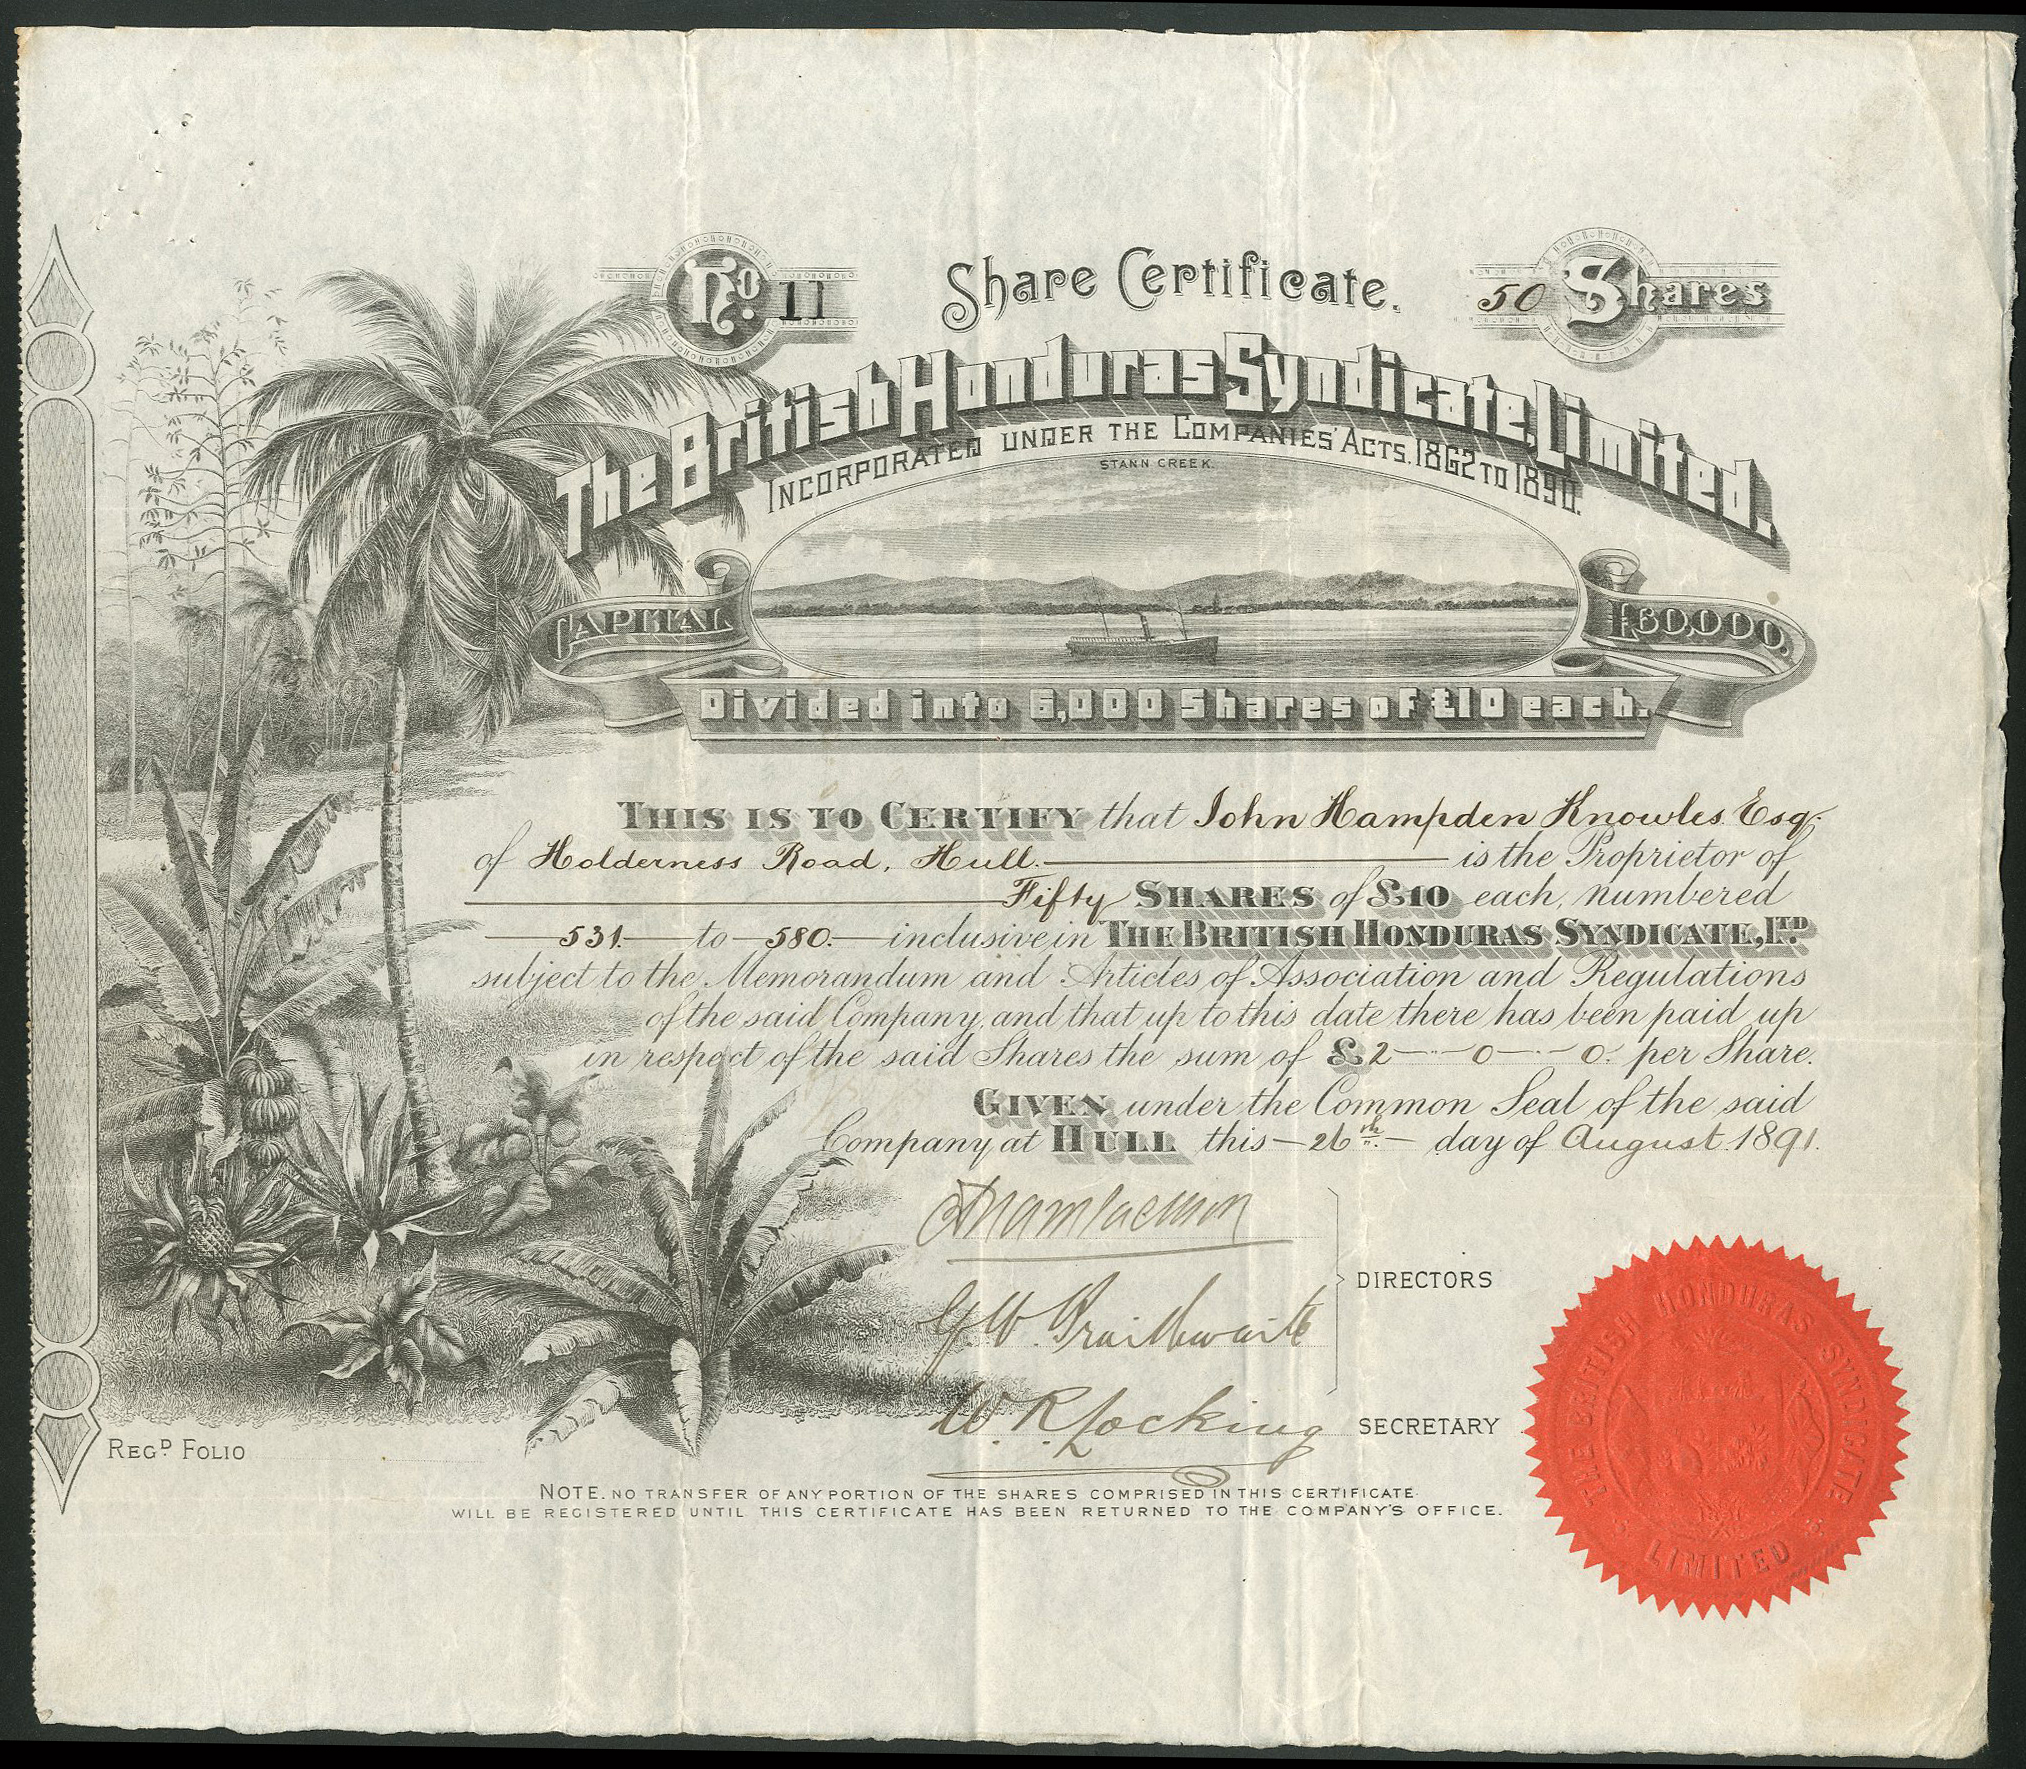 No. 11
Share Certificate.
50 Shares
The British Honduras Syndicate, Limited.
INCORPORATED UNDER THE COMPANIES' ACTS. 1862 TO 1890.
STANN CREEK.
CAPITAL £60,000.
Divided into 6,000 Shares of £10 each.
THIS IS TO CERTIFY that John Hampden Knowles Esq.
of Holderness Road, Hull. is the Proprietor of
Fifty SHARES of £10 each, numbered
531. to 580. inclusive in THE BRITISH HONDURAS SYNDICATE, LTD
subject to the Memorandum and Articles of Association and Regulations
of the said Company, and that up to this date there has been paid up
in respect of the said Shares the sum of £2 - 0 - 0. per Share.
GIVEN under the Common Seal of the said
Company at HULL this 26th. day of August 1891.
DIRECTORS
G. W. Braithwaite
W. R. Locking SECRETARY
REGD. FOLIO
NOTE. NO TRANSFER OF ANY PORTION OF THE SHARES COMPRISED IN THIS CERTIFICATE
WILL BE REGISTERED UNTIL THIS CERTIFICATE HAS BEEN RETURNED TO THE COMPANY'S OFFICE.
THE BRITISH HONDURAS SYNDICATE
LIMITED